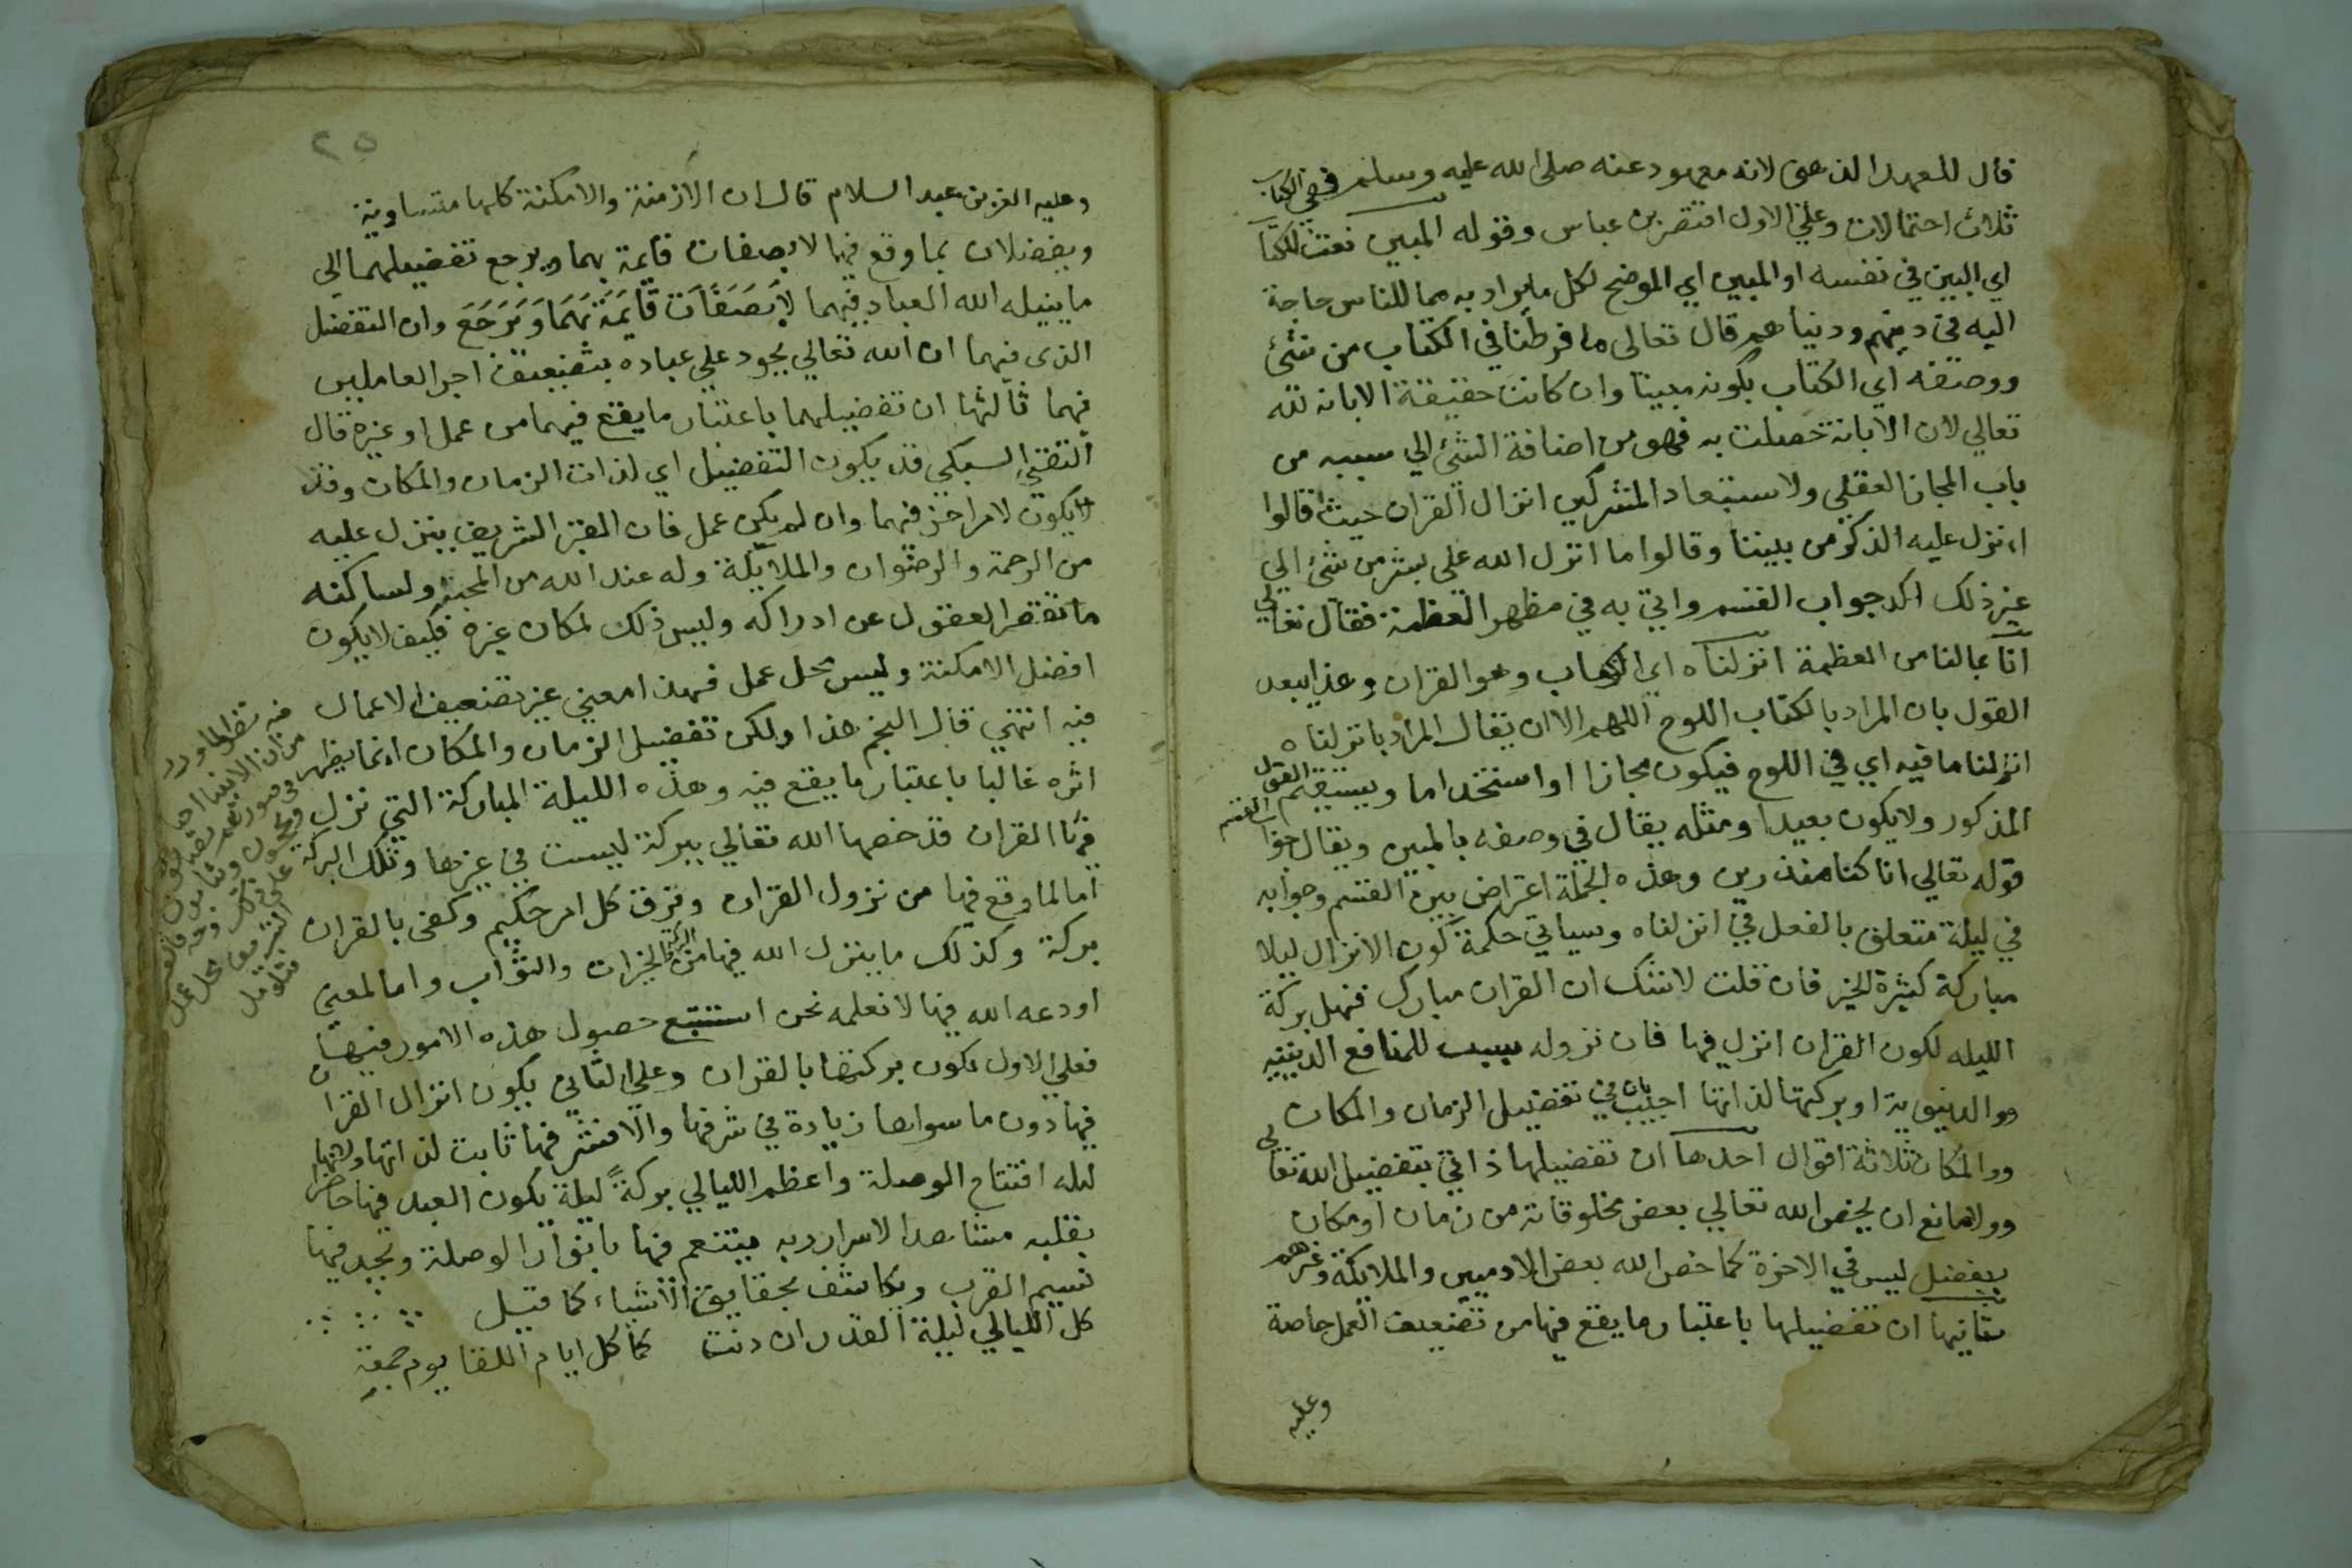 قال للعهد الذهنى لانه معهود عنه صلى الله عليه وسلم ففي الكتاب
ثلاث احتمالات وعلى الاول اقتصر بن عباس وقوله المبين نعت للكتاب
اي البين في نفسه او المبين اي الموضح لكل ما يراد به مما للناس حاجة
اليه في دينهم ودنياهم قال تعالى ما فرطنا في الكتاب من شئ
ووصفه اي الكتاب بكونه مبينا وان كانت حقيقة الابانه لله
تعالي لان الابانة حصلت به فهو من اضافة الشئ الي سببه من
باب المجاز العقلي ولاستبعاد المشركين انزال القران حيث قالوا
اءنزل عليه الذكر من بيننا وقالوا ما انزل الله على بشر من شئ الي
غير ذلك اكد جواب القسم واتي به في مظهر العظمة فقال تعالي
انا بمالنا من العظمة انزلناه اي الكتاب وهو القران وهذا يبعد
القول بان المراد بالكتاب اللوح اللهم الا ان يقال المراد بانزلناه
انزلنا ما فيه اي في اللوح فيكون مجازا او استخداما ويستقيم القول
المذكور ولا يكون بعيدا ومثله يقال في وصفه بالمبين ويقال جواب القسم
قوله تعالي انا كنا منذرين وهذه الجملة اعتراض بين القسم وجوابه
في ليلة متعلق بالفعل في انزلناه وسياتي حكمة كون الانزال ليلا
مباركة كثيرة الخير فان قلت لا شك ان القران مبارك فهل بركة
الليله لكون القران انزل فيها فان نزوله سبب للمنافع الدينيه
والدنيوية او بركتها لذاتها اجيب بان في تفضيل الزمان والمكان
والمكان ثلاثة اقوال احدها ان تفضيلها ذاتي بتفضيل الله تعالي
ولا مانع ان يخص الله تعالي بعض مخلوقاته من زمان او مكان
بفضل ليس في الاخرة كما خص الله بعض الادميين والملايكة وغيرهم
ثانيها ان تفضيلها باعتبار ما يقع فيها من تضعيف العمل خاصة
وعليه
٢٥
وعليه العز بن عبد السلام قال ان الازمنة والامكنة كلها متساوية
ويفضلان بما وقع فيها لا بصفات قايمة بهما ويرجع تفضيلهما الى
ما ينيله الله العباد فيهما لا بصفات قايمة بهما ويرجع وان التفضيل
الذى فيهما ان الله تعالي يجود على عباده بتضعيف اجر العاملين
فيهما ثالثها ان تفضيلهما باعتبار ما يقع فيهما من عمل او غيره قال
التقي السبكي قد يكون التفضيل اي لذات الزمان والمكان وقد
لا يكون لامر اخر فيهما وان لم يكن عمل فان القبر الشريف ينزل عليه
من الرحمة والرضوان والملايكة وله عند الله من المحبة ولساكنه
ما تقصر العقول عن ادراكه وليس ذلك لمكان غيره فكيف لا يكون
افضل الامكنة وليس محل عمل فهذا معني غير تضعيف الاعمال
فيه انتهي قال النجم هذا ولكن تفضيل الزمان والمكان انما يظهر
اثره غالبا باعتبار ما يقع فيه وهذه الليلة المباركة التي نزل
فيها القران قد خصها الله تعالي ببركة ليست في غيرها وتلك البركة
اما لما وقع فيها من نزول القران وفرق كل امر حكيم وكفى بالقران
بركة وكذلك ما ينزل الله فيها من البركة الخيرات والثواب واما لمعني
اودعه الله فيها لا نعلمه نحن استتبع حصول هذه الامور فيها
فعلي الاول تكون بركتها بالقران وعلي الثاني يكون انزال القران
فيها دون ما سواها زيادة في شرفها والا فشرفها ثابت لذاتها ولانها
ليله افتتاح الوصلة واعظم الليالي بركةً ليلة يكون العبد فيها حاضرا
بقلبه مشاهدا لاسرار ربه يتنعم فيها بانوار الوصلة ويجد فيها
نسيم القرب ويكاشف بحقايق الاشياء كما قيل
كل الليالي ليلة القدر ان دنت كما كل ايام اللقا يوم جمعة
فيه نظر لما ورد
من ان الانبيا احيا